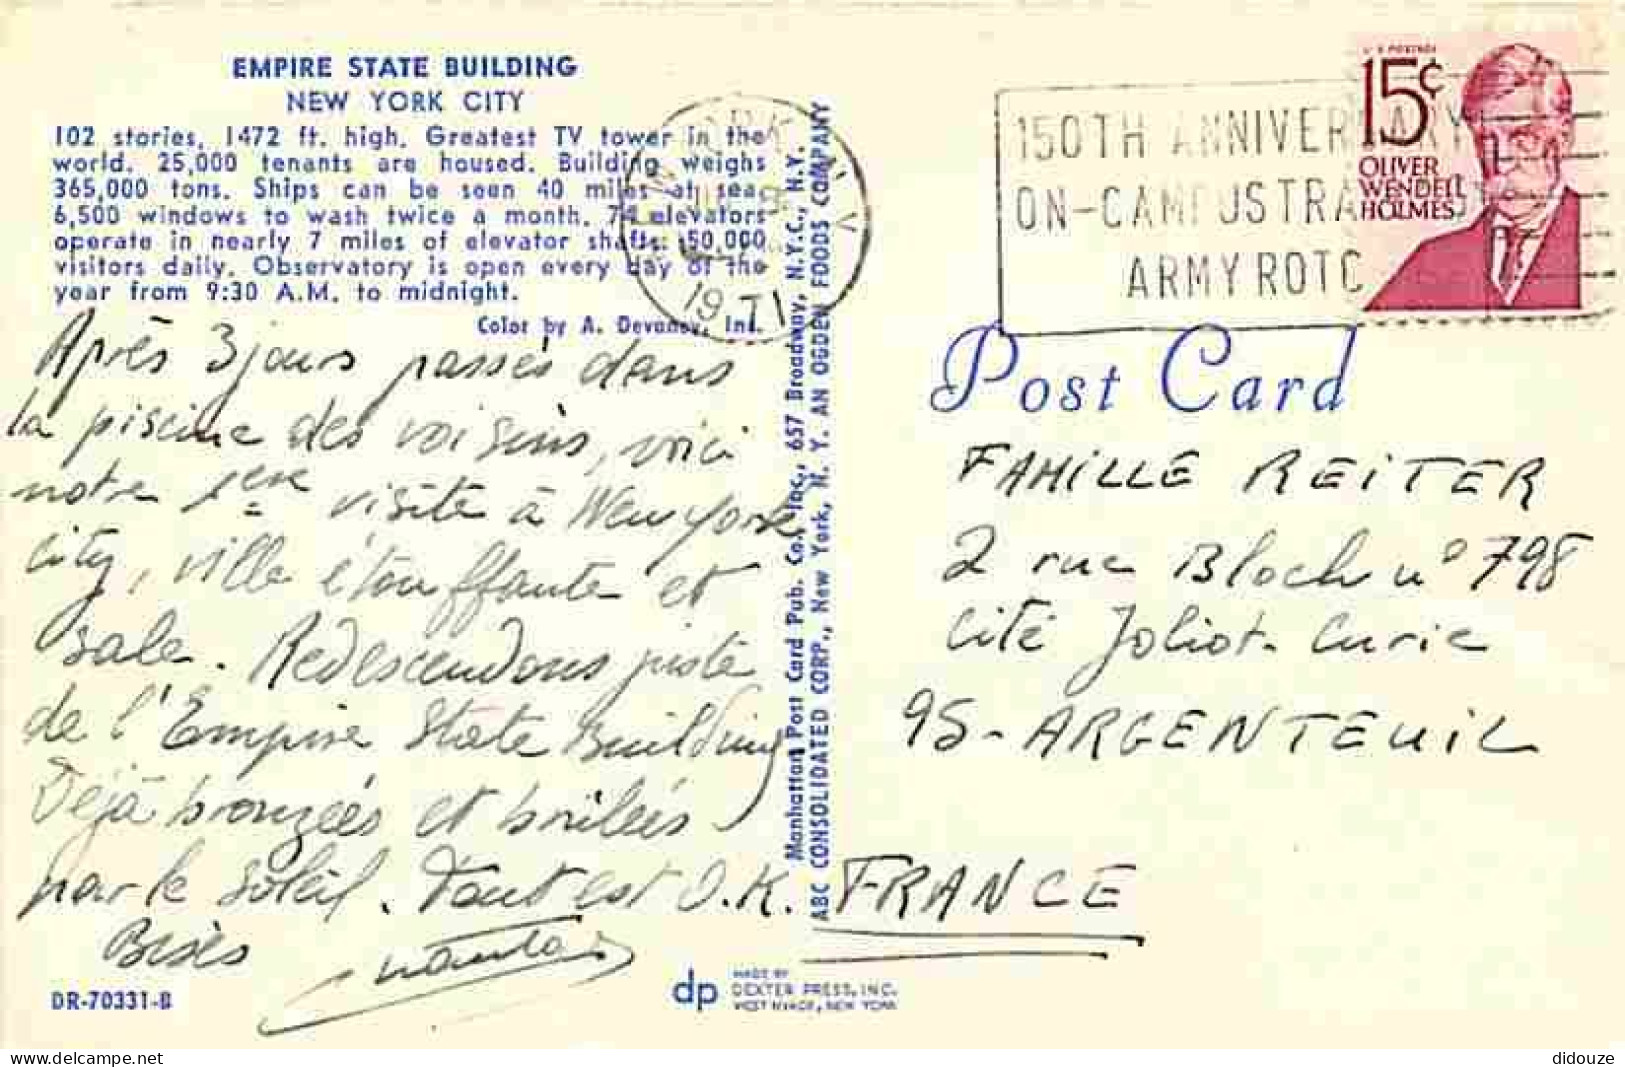 EMPIRE STATE BUILDING
NEW YORK CITY
102 stories, 1472 ft. high. Greatest TV tower in the
world. 25,000 tenants are housed. Building weighs
365,000 tons. Ships can be seen 40 miles at sea.
6,500 windows to wash twice a month. 74 elevators
operate in nearly 7 miles of elevator shafts. 50,000
visitors daily. Observatory is open every day of the
year from 9:30 A.M. to midnight.
Color by A. Devaney, Inc.
Après 3 jours passés dans
la piscine des voisins, voici
notre 1ère visite à New York
City, ville étouffante et
sale. Redescendons juste
de l'Empire State Building
Déjà bronzés et brûlés
par le soleil. Tout est O.K.
Bises
DR-70331-B
Manhattan Post Card Pub. Co., Inc., 657 Broadway, N.Y.C., N.Y.
ABC CONSOLIDATED CORP., New York, N. Y. AN OGDEN FOODS COMPANY
dp
MADE BY
DEXTER PRESS, INC.
WEST NYACK, NEW YORK
1971
150TH ANNIVERSARY
ON-CAMPUS TRAINING
ARMY ROTC
U S POSTAGE
15¢
OLIVER
WENDELL
HOLMES
Post Card
FAMILLE REITER
2 rue Bloch n° 798
Cité Joliot-Curie
95-ARGENTEUIL
FRANCE
didouze